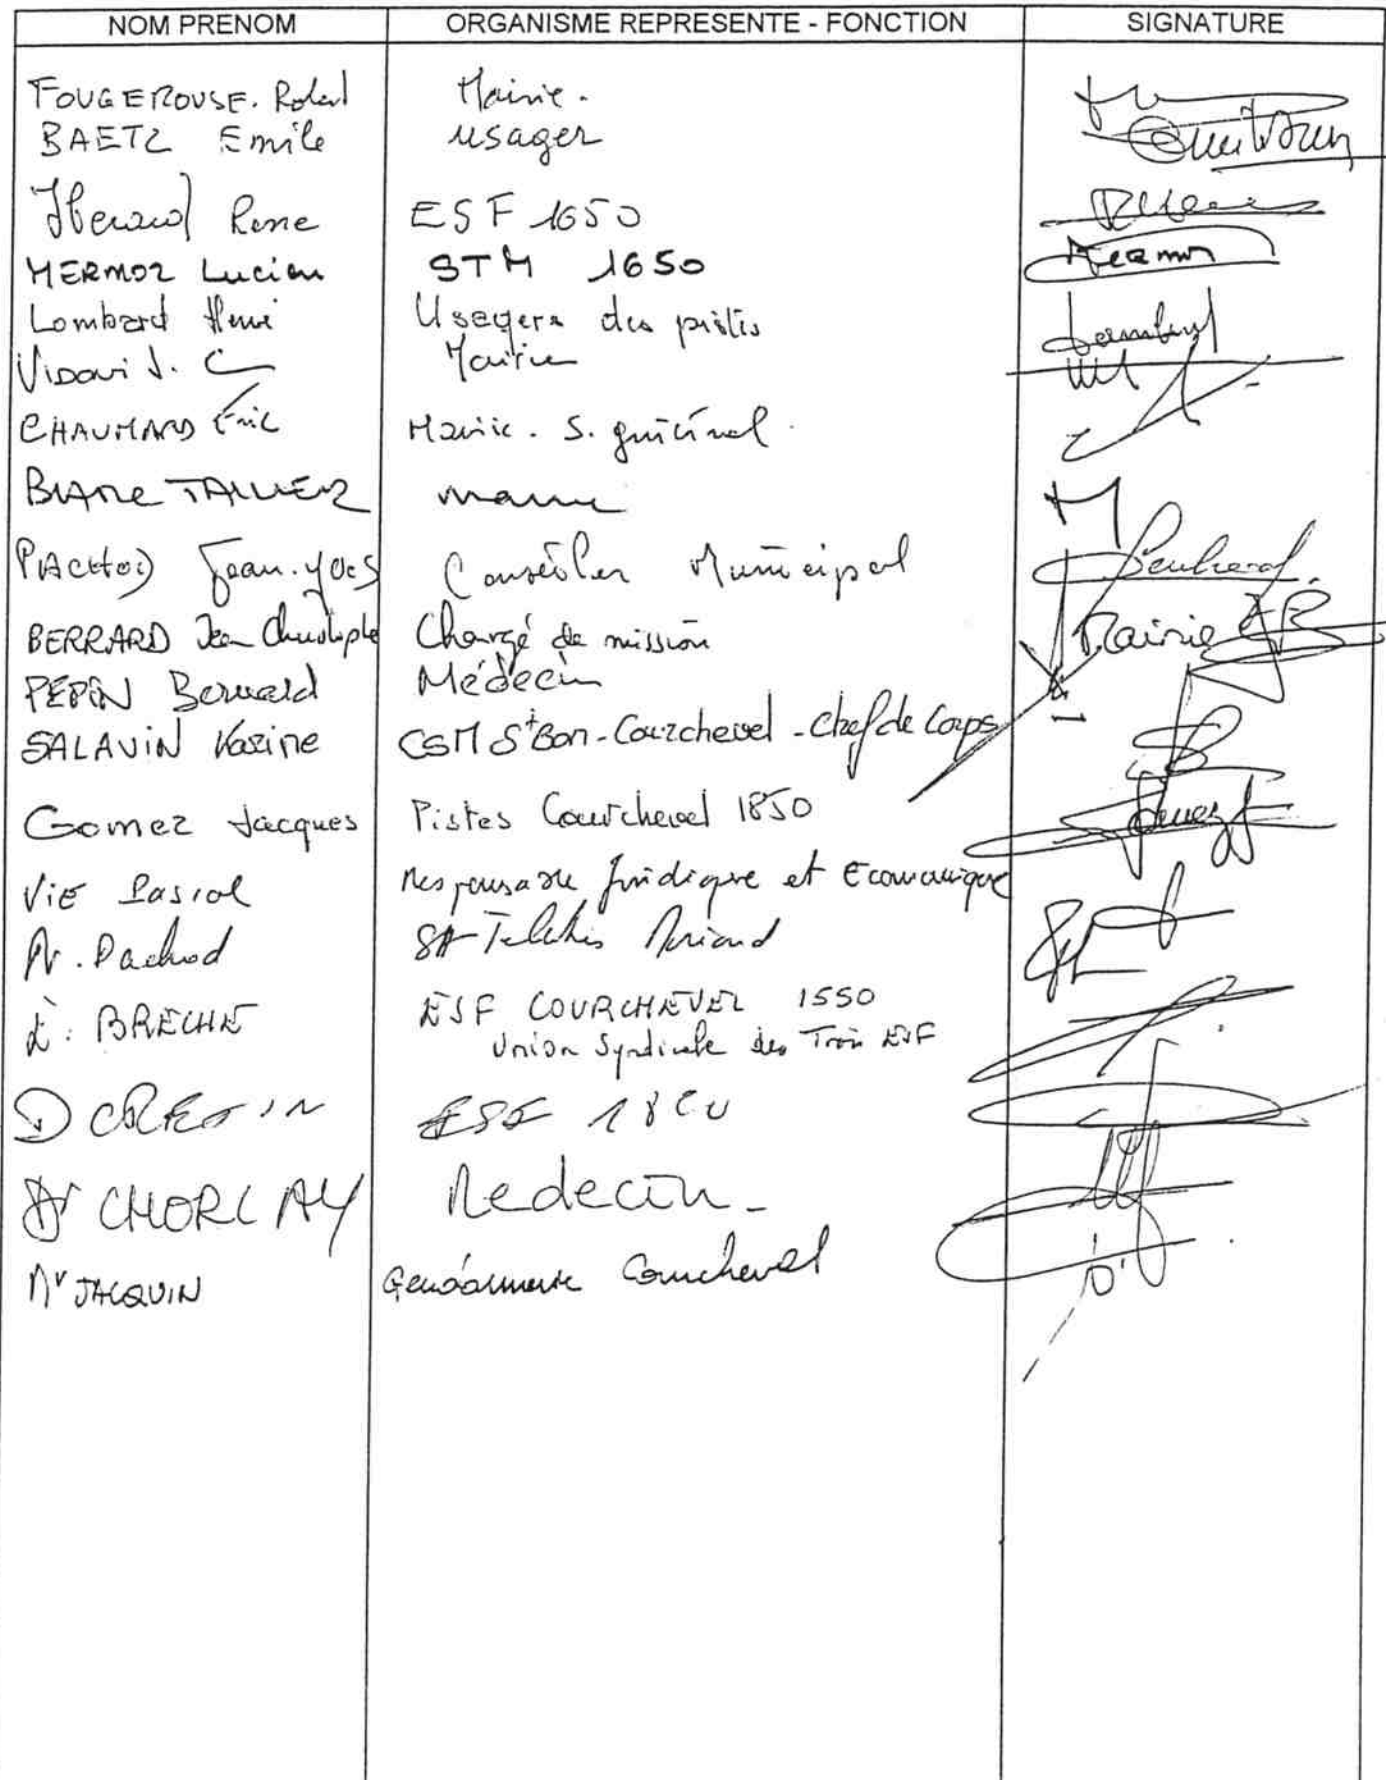 NOM PRENOM ORGANISME REPRESENTE - FONCTION SIGNATURE
FOUGEROUSE. Robert Mairie.
BAETZ Emile usager
René ESF 1650
MERMOZ Lucien STM 1650
Lombard Henri Usagers des pistes
J. C Mairie
CHAUMARD Éric Mairie. S. général.
BLANC TALLIER mairie
PACHOD Jean.yves Conseiller Municipal
BERRARD Jean Christophe Chargé de mission Mairie
PEPIN Bernard Médecin
SALAVIN Karine CSM St Bon-Courchevel - Chef de Corps
Gomez Jacques Pistes Courchevel 1850
ViE Pascal Responsable juridique et Economique
Pachod SA
BRECHE ESF COURCHEVEL 1550
Union Syndicale des Trois ESF
D CRETIN ESF 1850
Dr CHORLAY Medecin -
Mr JACQUIN Gendarmerie Courchevel